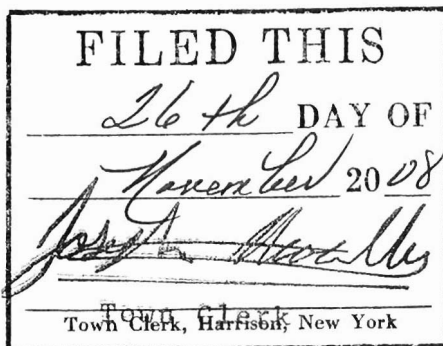 FILED THIS
26th DAY OF
November 2008
Joseph
Town Clerk
Town Clerk, Harrison, New York